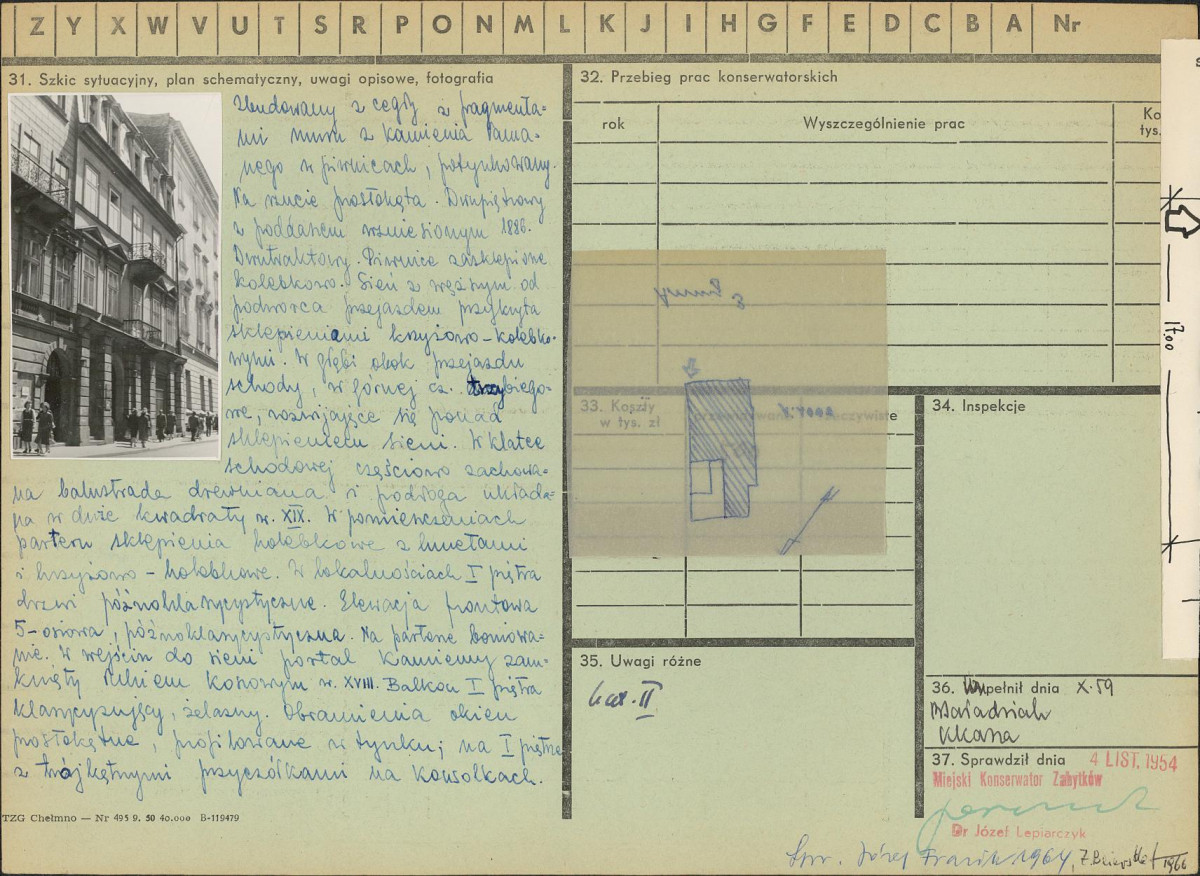 Z Y X W V U T S R P O N M L K J I H G F E D C B A Nr
31. Szkic sytuacyjny, plan schematyczny, uwagi opisowe, fotografia
Zbudowany z cegły z fragmenta=
mi muru z kamienia łama=
nego w piwnicach, potynkowany.
Na rzucie prostokąta. Dwupiętrowy
z poddaszem wzniesionym 1886.
Dwutraktowy. Piwnice zasklepione
kolebkowo. Sień z wąskim od
podworca przejazdem przykryta
sklepieniami krzyżowo-kolebko-
wymi. W głębi obok przejazdu
schody, w górnej cz. trzybiego-
we, rozwijające się ponad
sklepieniem sieni. W klatce
schodowej częściowo zachowa-
na balustrada drewniana i podłoga układa=
na w duże kwadraty w. XIX. W pomieszczeniach
parteru sklepienia kolebkowe z lunetami
i krzyżowo-kolebkowe. W lokalnościach I piętra
drzwi późnoklasycystyczne. Elewacja frontowa
5-osiowa, późnoklasycystyczna. Na parterze boniowa=
nie. W wejściu do sieni portal kamienny zam-
knięty łukiem koszowym w. XVIII. Balkon I piętra
klasycyzujący, żelazny. Obramienia okien
prostokątne, profilowane w tynku; na I piętrze
z trójkątnymi przyczółkami na konsolkach.
TZG Chełmno — Nr 495 9. 50 40.000 B-119479
32. Przebieg prac konserwatorskich
rok
Wyszczególnienie prac
Ko
tys.
17.00
33. Koszty
w tys. zł
34. Inspekcje
35. Uwagi różne
kat. II
36. Wypełnił dnia X.59
37. Sprawdził dnia 4 LIST. 1954
Miejski Konserwator Zabytków
Dr Józef Lepiarczyk
Spr. Józef Frazik 1964,
1966